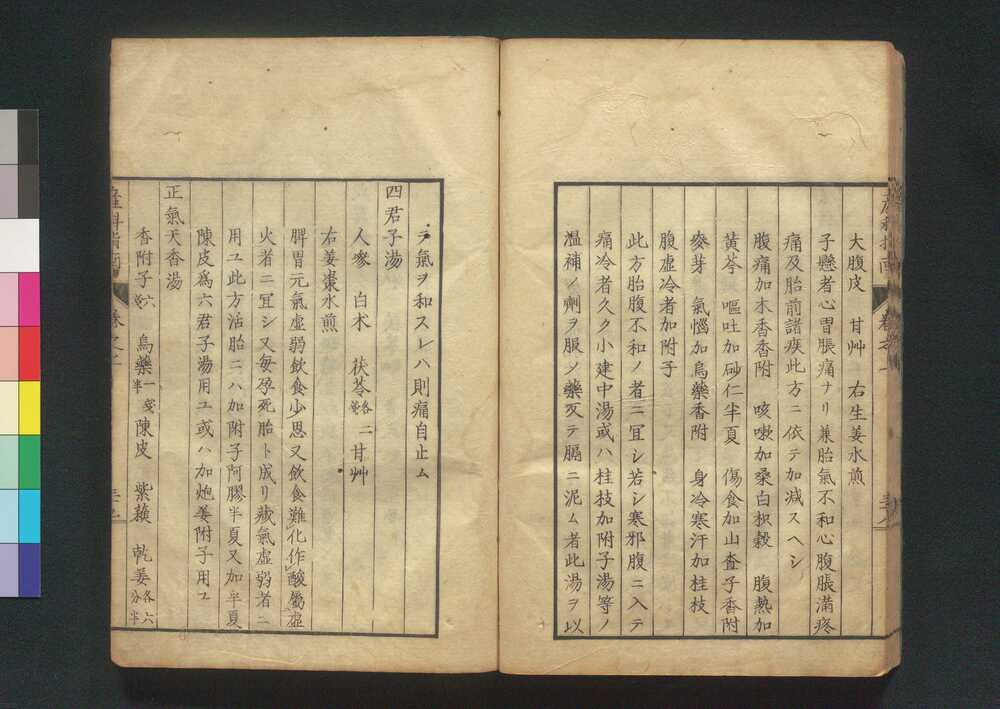 大腹皮　甘艸　右生姜水煎
子懸者心胃脹痛ナリ兼胎氣不和心腹脹満疼
痛及胎前諸疾此方ニ依テ加減スヘシ
腹痛加木香香附　咳嗽加桑白枳殼　腹熱加
黄芩　嘔吐加砂仁半夏　傷食加山査子香附
麥芽　氣惱加烏藥香附　身冷寒汗加桂枝
腹虚冷者加附子
此方胎腹不和ノ者ニ冝シ若シ寒邪腹ニ入テ
痛冷者久ク小建中湯或ハ桂枝加附子湯等ノ
温補ノ劑ヲ服ノ藥反テ膈ニ泥ム者此湯ヲ以
テ氣ヲ和スレハ則痛自止ム
四君子湯
人參　白朮　茯苓各二戔　甘艸
右姜棗水煎
脾胃元氣虚弱飲食少思又飲食難化作酸屬虚
火者ニ冝シ又毎孕死胎ト成リ藏氣虚弱者ニ
用ユ此方活胎ニハ加附子阿膠半夏又加半夏
陳皮爲六君子湯用ユ或ハ加炮姜附子用ユ
正氣天香湯
香附子六戔　烏藥一戔半　陳皮　紫蘓　乾姜各六分半
産科指南　卷之一